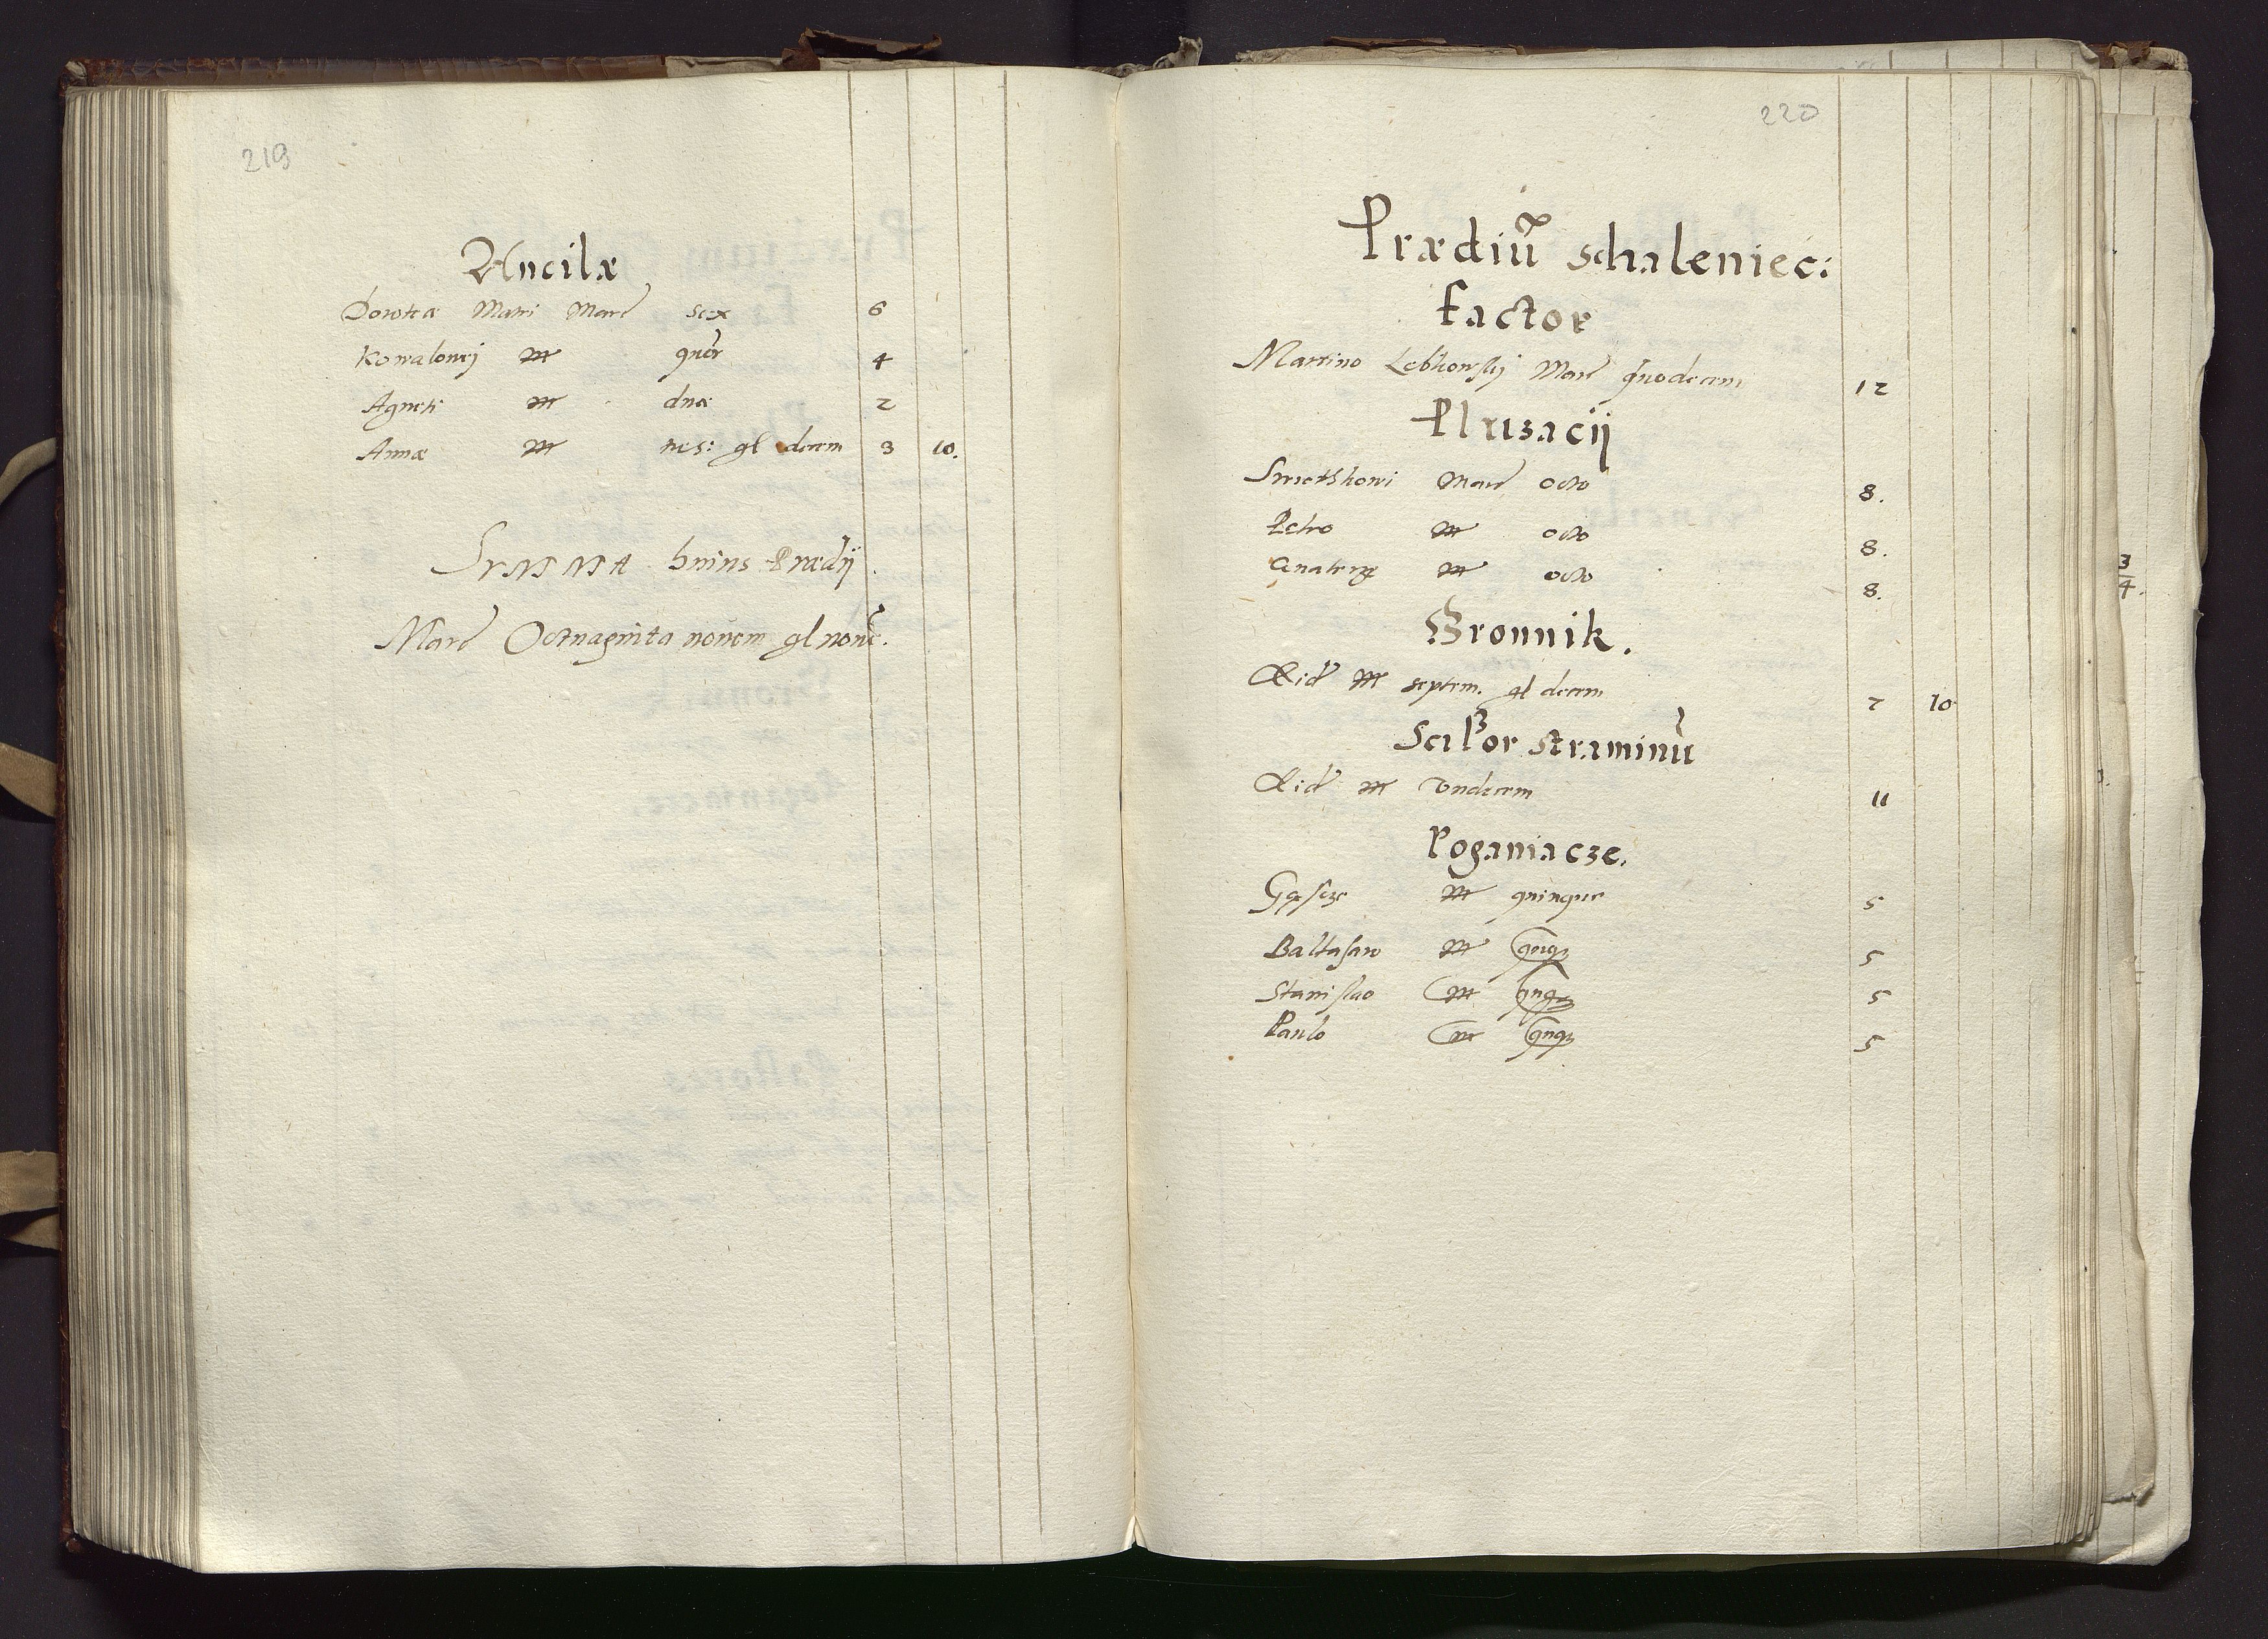 219
Ancilæ
Doroteæ Matri Marc sex 6
Kowalowej mr quor 4
Agneti mr duæ 2
Annæ mr tres: gl decem 3 10.
SUMMA huius Prædij
Marc Octuaginta novem gl nove.
220
Prædiũ Schaleniec:
Factor
Martino Lebkowskj Marc duodecim 12
Pluzacij
Marc octo 8.
Petro mr octo 8.
mr octo 8.
Gronnik.
Eid mr septem. gl decem 7 10
Straminũ
Eid mr Vndecem 11
Poganiacze.
Gęsicze mr quinque 5
Baltasaro mr qnqz 5
Stanislao mr qnqz 5
Paulo mr qnqz 5
3
4.